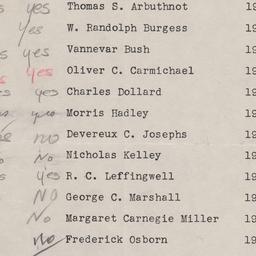 s yes Thomas S. Arbuthnot 19
yes W. Randolph Burgess 19
s yes Vannevar Bush 19
s yes Oliver C. Carmichael 19
es yes Charles Dollard 19
yes Morris Hadley 19
no Devereux C. Josephs 19
No Nicholas Kelley 19
s yes R. C. Leffingwell 19
NO George C. Marshall 19
No Margaret Carnegie Miller 19
No Frederick Osborn 19